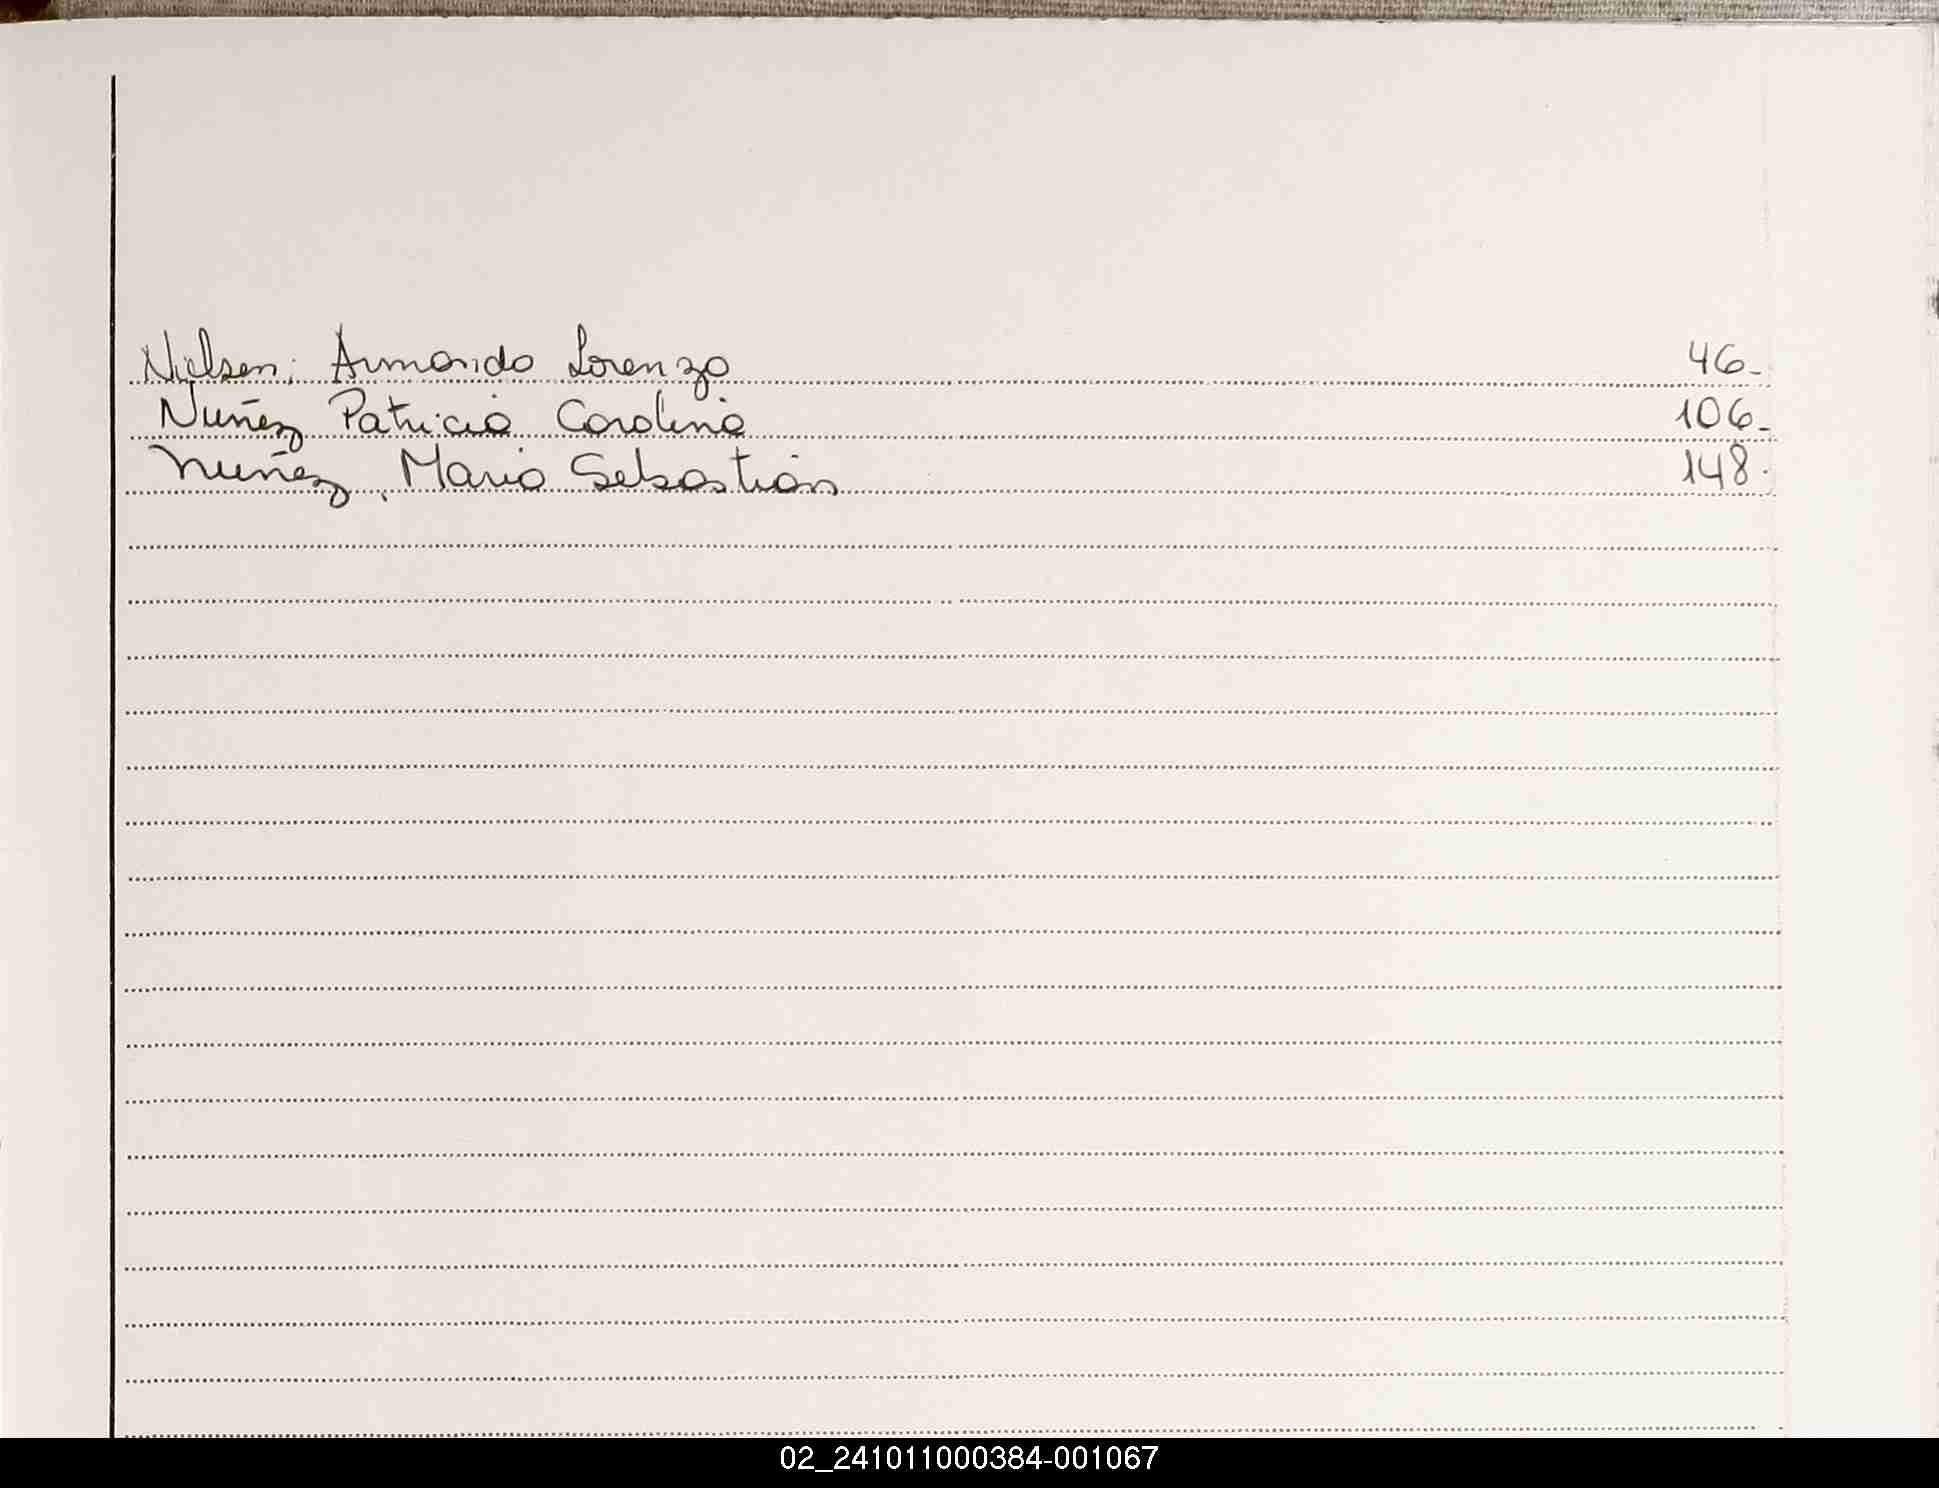 Nielsen; Armando Lorenzo 46-
Nuñez Patricia Carolina 106-
Nuñez, Mario Sebastián 148.
02_241011000384-001067